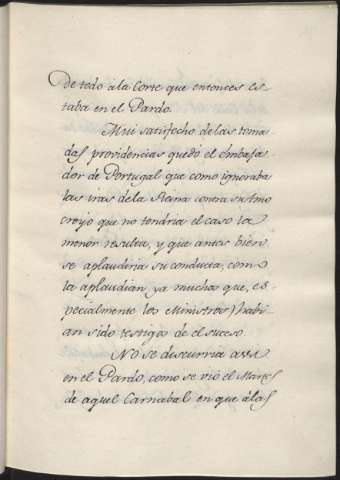 De todo à la Corte que entonces es-
taba en el Pardo.
Mui satisfecho de las toma
das providencias quedò el Embaja-
dor de Portugal que como ignoraba
las iras de la Reina contra su Amo
creyo que no tendria el caso la
menor resulta, y que antes bien
se aplaudiria su conducta, como
la aplaudian ya muchos que, es-
pecialmente los Ministros) habi-
an sido testigos de el suceso
No se discurria assi
en el Pardo, como se viò el Martes
de aquel Carnabal en que à las